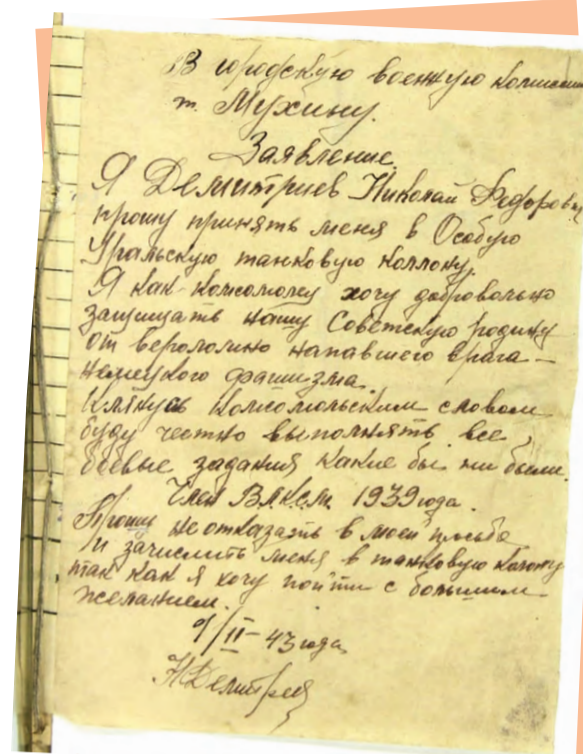 В городскую военную комисси
т. Мухину.
Заявление
Я Демитриев Николай Федорович
прошу принять меня в Особую
Уральскую танковую коллону.
Я как комсомолец хочу добровольно
защищать нашу Советскую родину
от вероломно напавшего врага –
немецкого фашизма.
Клянусь комсомольским словом
буду честно выполнять все
боевые задания какие бы ни были.
Член ВЛКСМ. 1939 года.
Прошу не отказать в моей просьбе
и зачислить меня в танковую колону
так как я хочу пойти с большим
желанием.
9/II – 43 года
НДемитриев